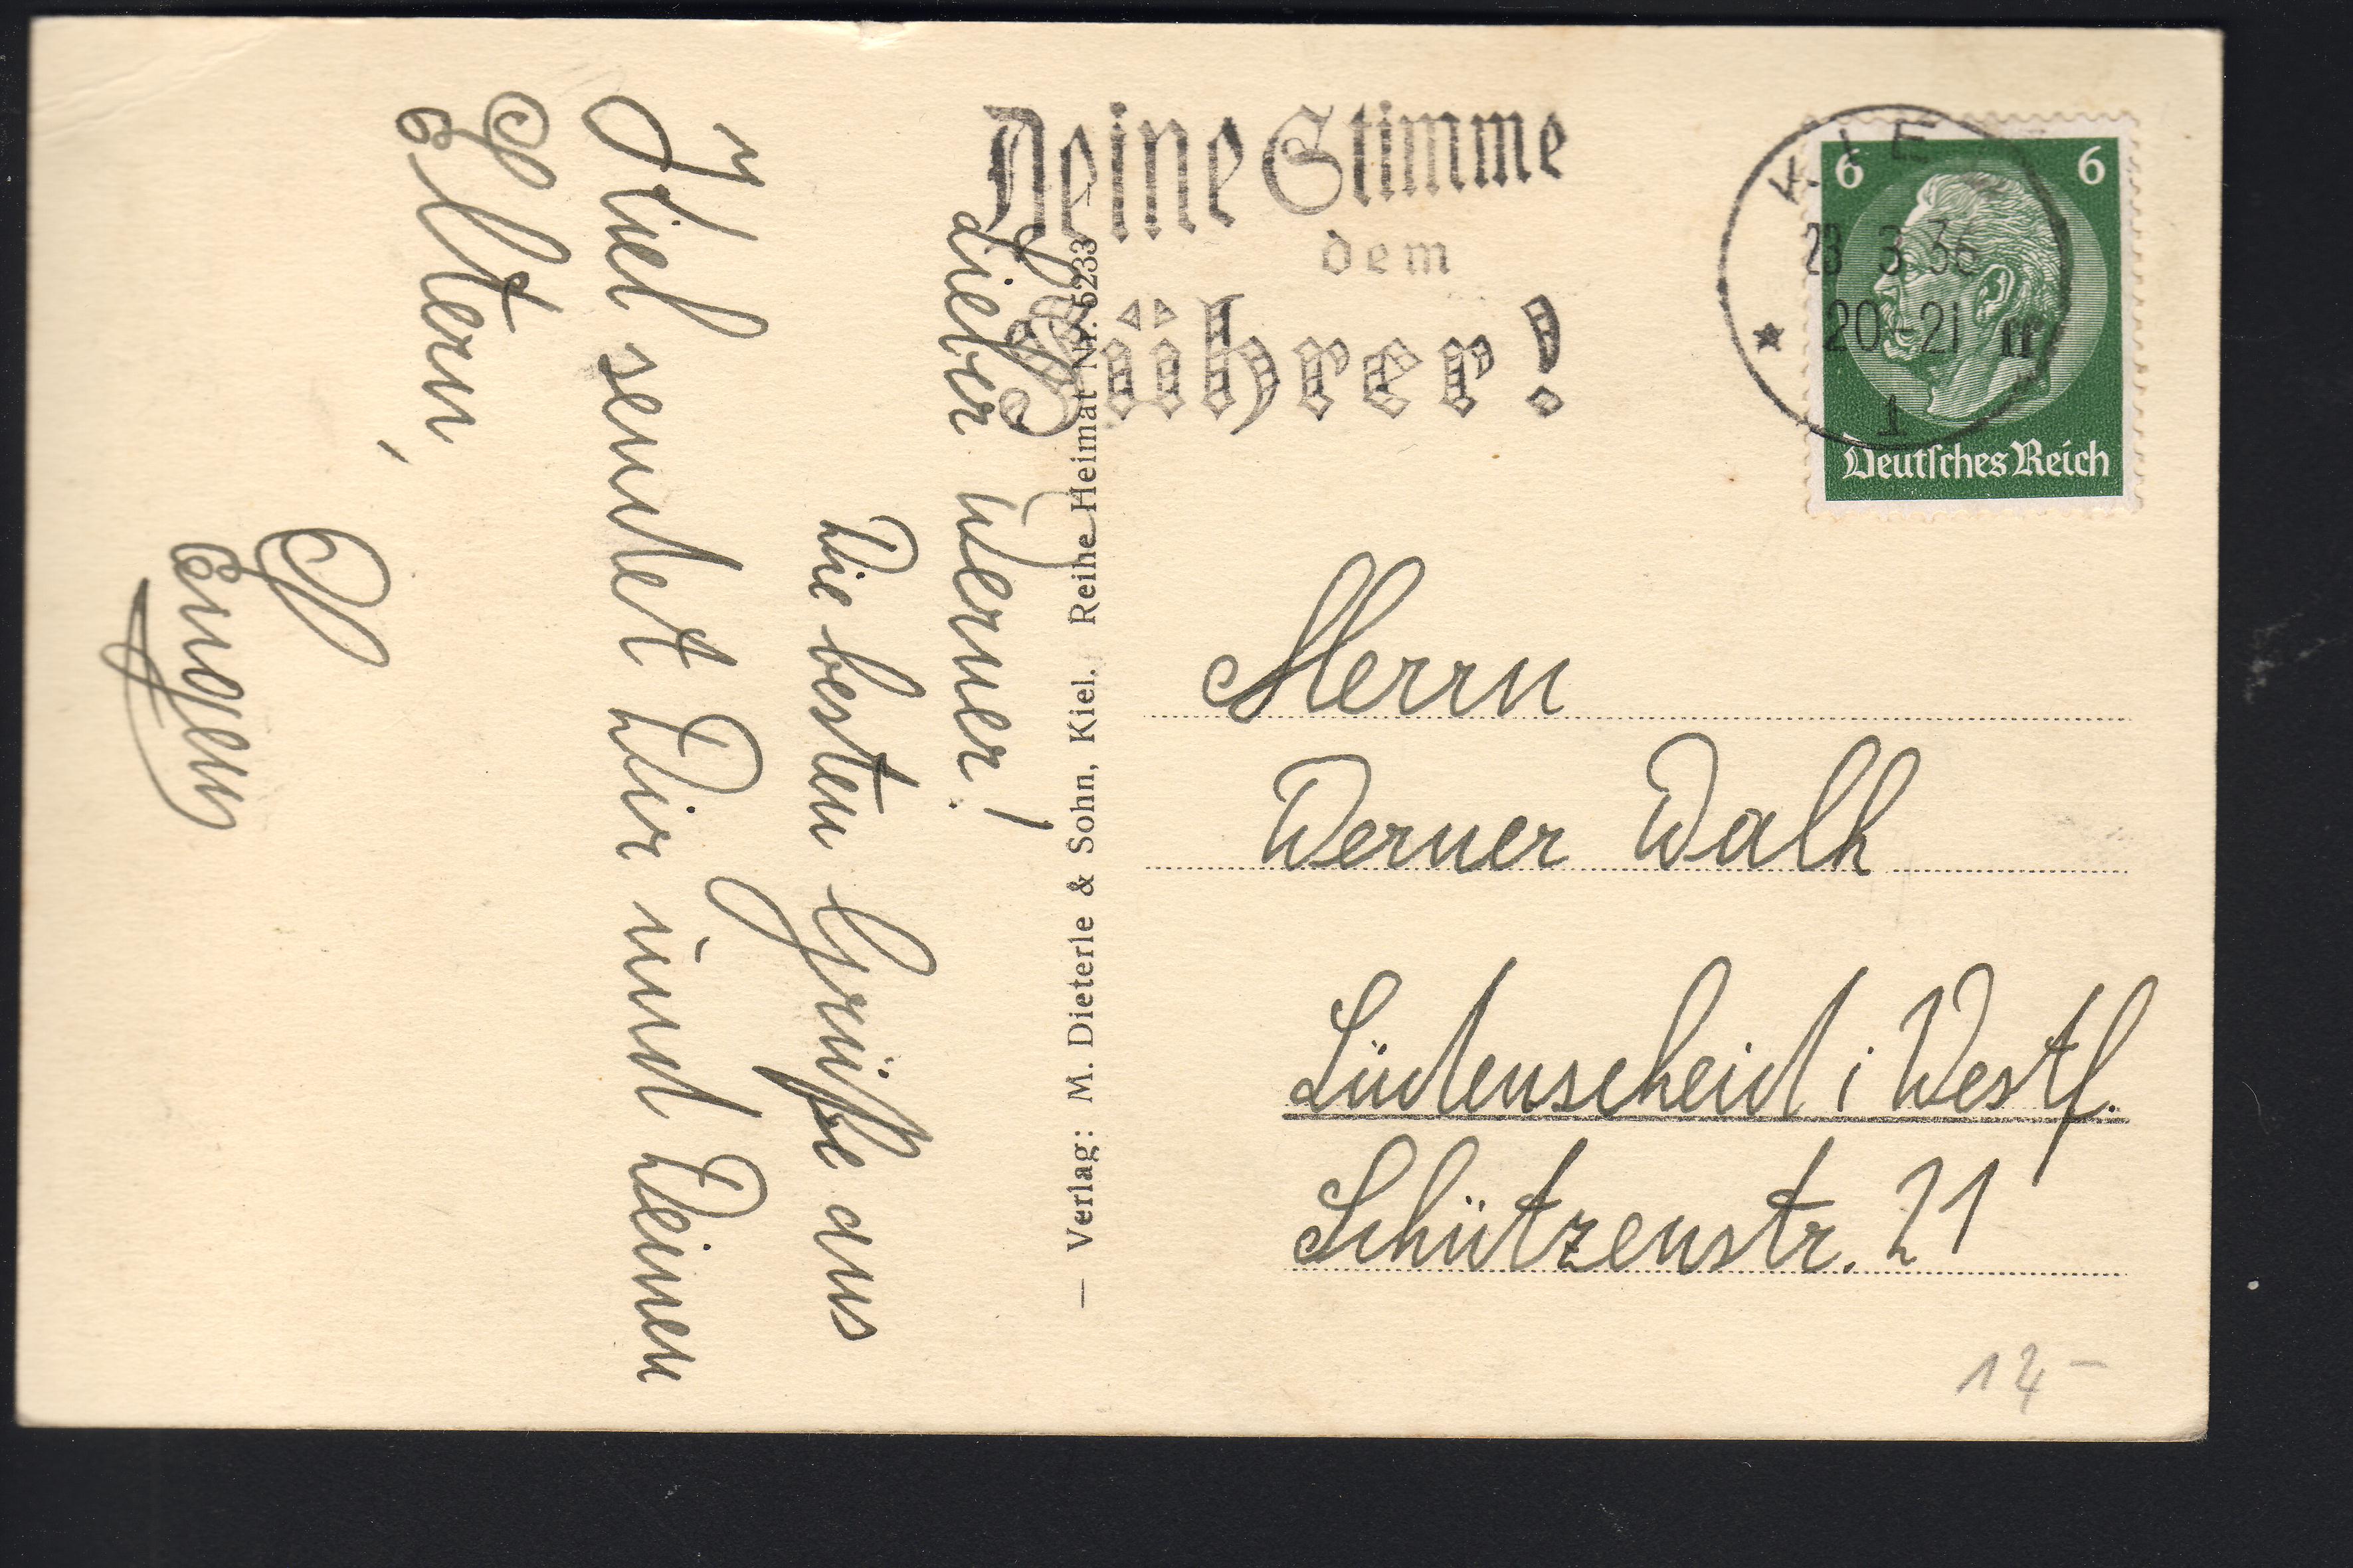 Deine Stimme
dem
Führer!
KIEL
23.3.36
20-21
1
6 6
Deutsches Reich
Lieber Werner!
Die besten Grüße aus
Kiel sendet Dir und Deinen
Eltern,
Eugen
— Verlag: M. Dieterle & Sohn, Kiel. Reihe Heimat Nr. 5233 —
Herrn
Werner Walk
Lüdenscheid i Westf.
Schützenstr. 21